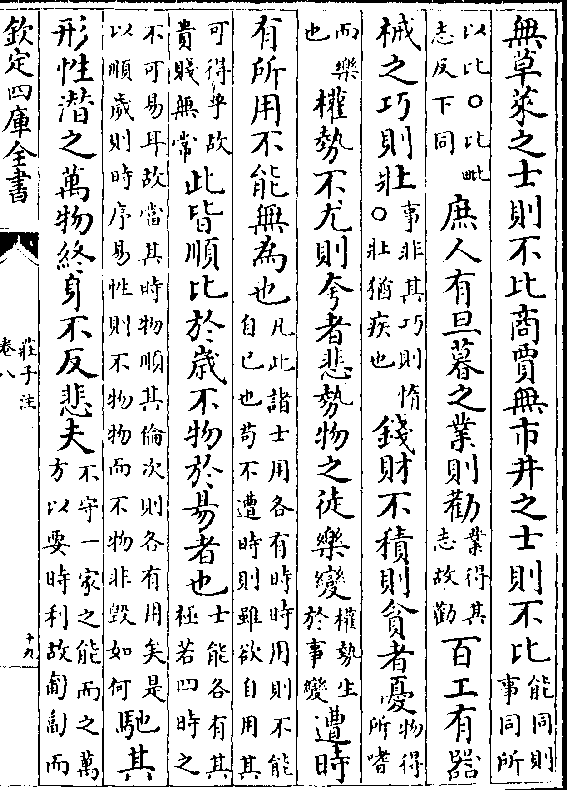 無草萊之士則不比商賈無市井之士則不比能同則事同所
以比〇比毗志反下同庶人有旦暮之業則勸業得其志故勸百工有器
械之巧則壯事非其巧則惰〇壯猶疾也錢財不積則貪者憂物得所嗜
而樂也權勢不尤則夸者悲勢物之徒樂變權勢生於事變遭時
有所用不能無為也凡此諸士用各有時時用則不能自已也苟不遭時則雖欲自用其
可得乎故貴賤無常此皆順比於歲不物於易者也士能各有其極若四時之
不可易耳故當其時物順其倫次則各有用矣是以順歲則時序易性則不物物而不物非毀如何馳其
形性潛之萬物終身不反悲夫不守一家之能而之萬方以要時利故匍匐而
欽定四庫全書
莊子注
卷八
十九